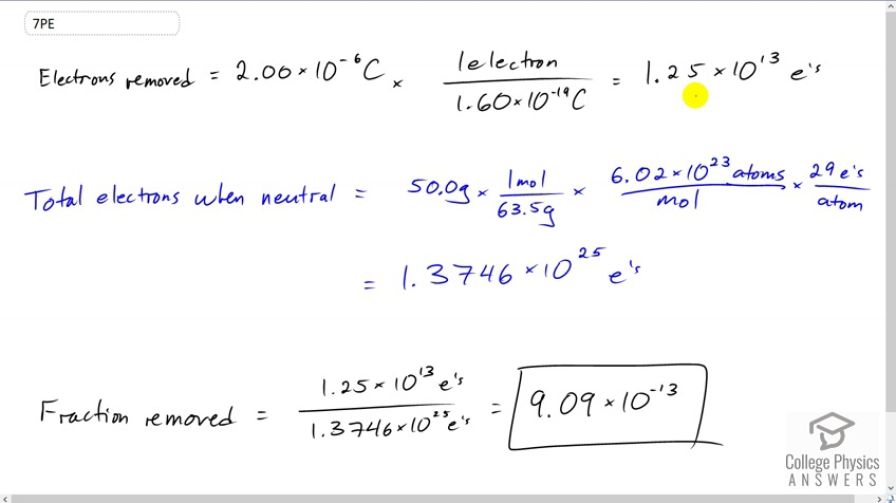 7PE
Electrons removed = 2.00 × 10⁻⁶ C × 1 electron / 1.60 × 10⁻¹⁹ C = 1.25 × 10¹³ e's
Total electrons when neutral = 50.0g × 1mol / 63.5g × 6.02 × 10²³ atoms / mol × 29 e's / atom
= 1.3746 × 10²⁵ e's
Fraction removed = 1.25 × 10¹³ e's / 1.3746 × 10²⁵ e's = 9.09 × 10⁻¹³
College Physics
ANSWERS